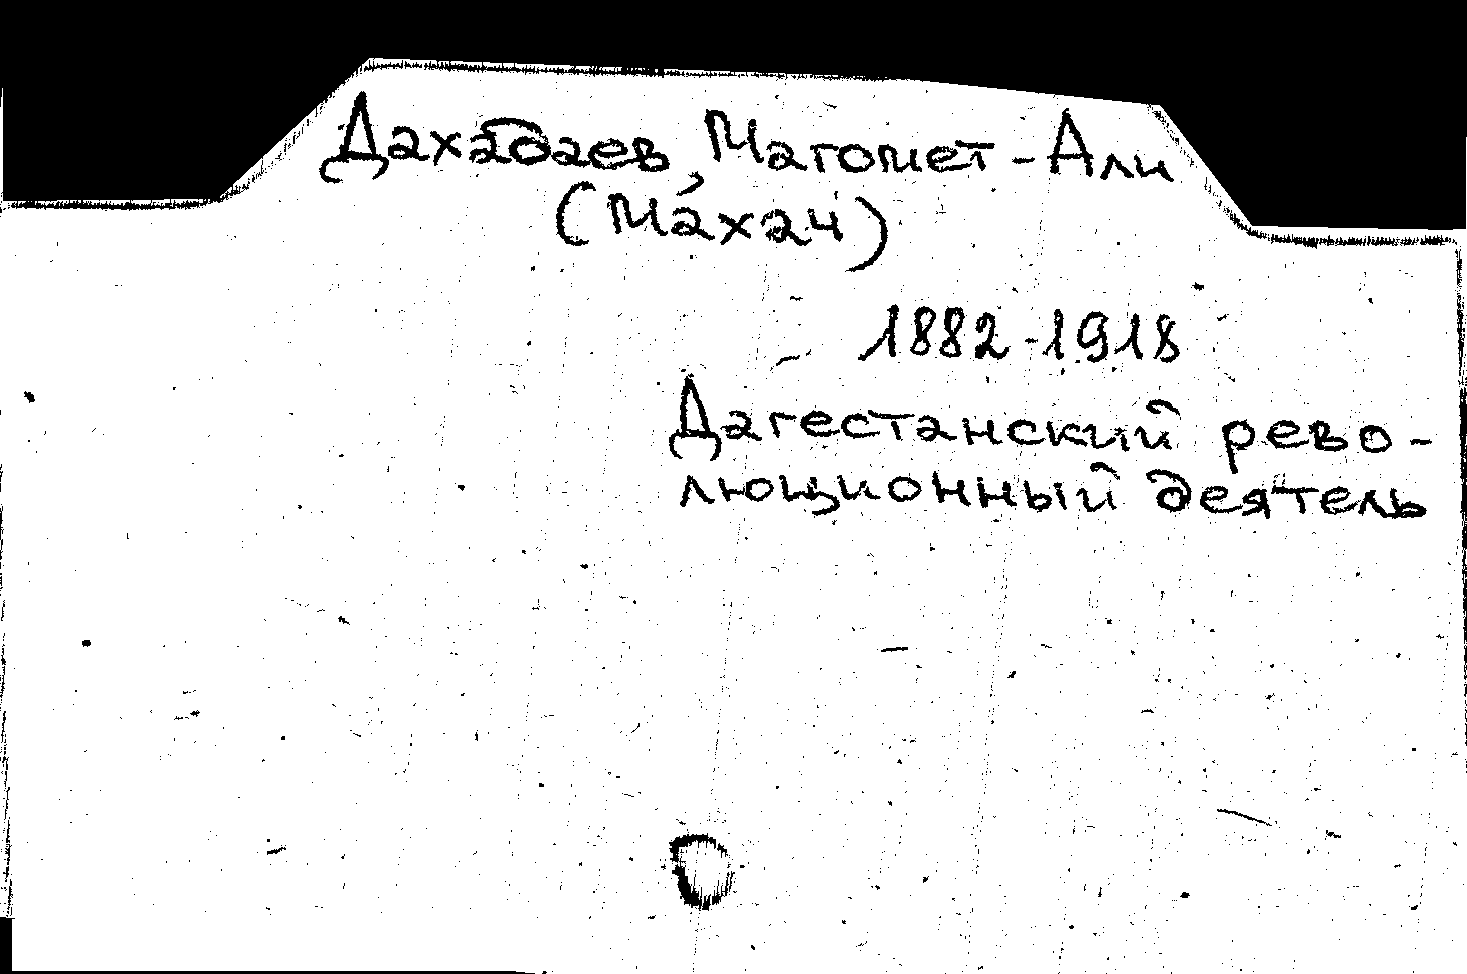 Дахадаев, Магомет-Али
(Ма́хач)
1882-1918
Дагестанский рево-
люционный деятель